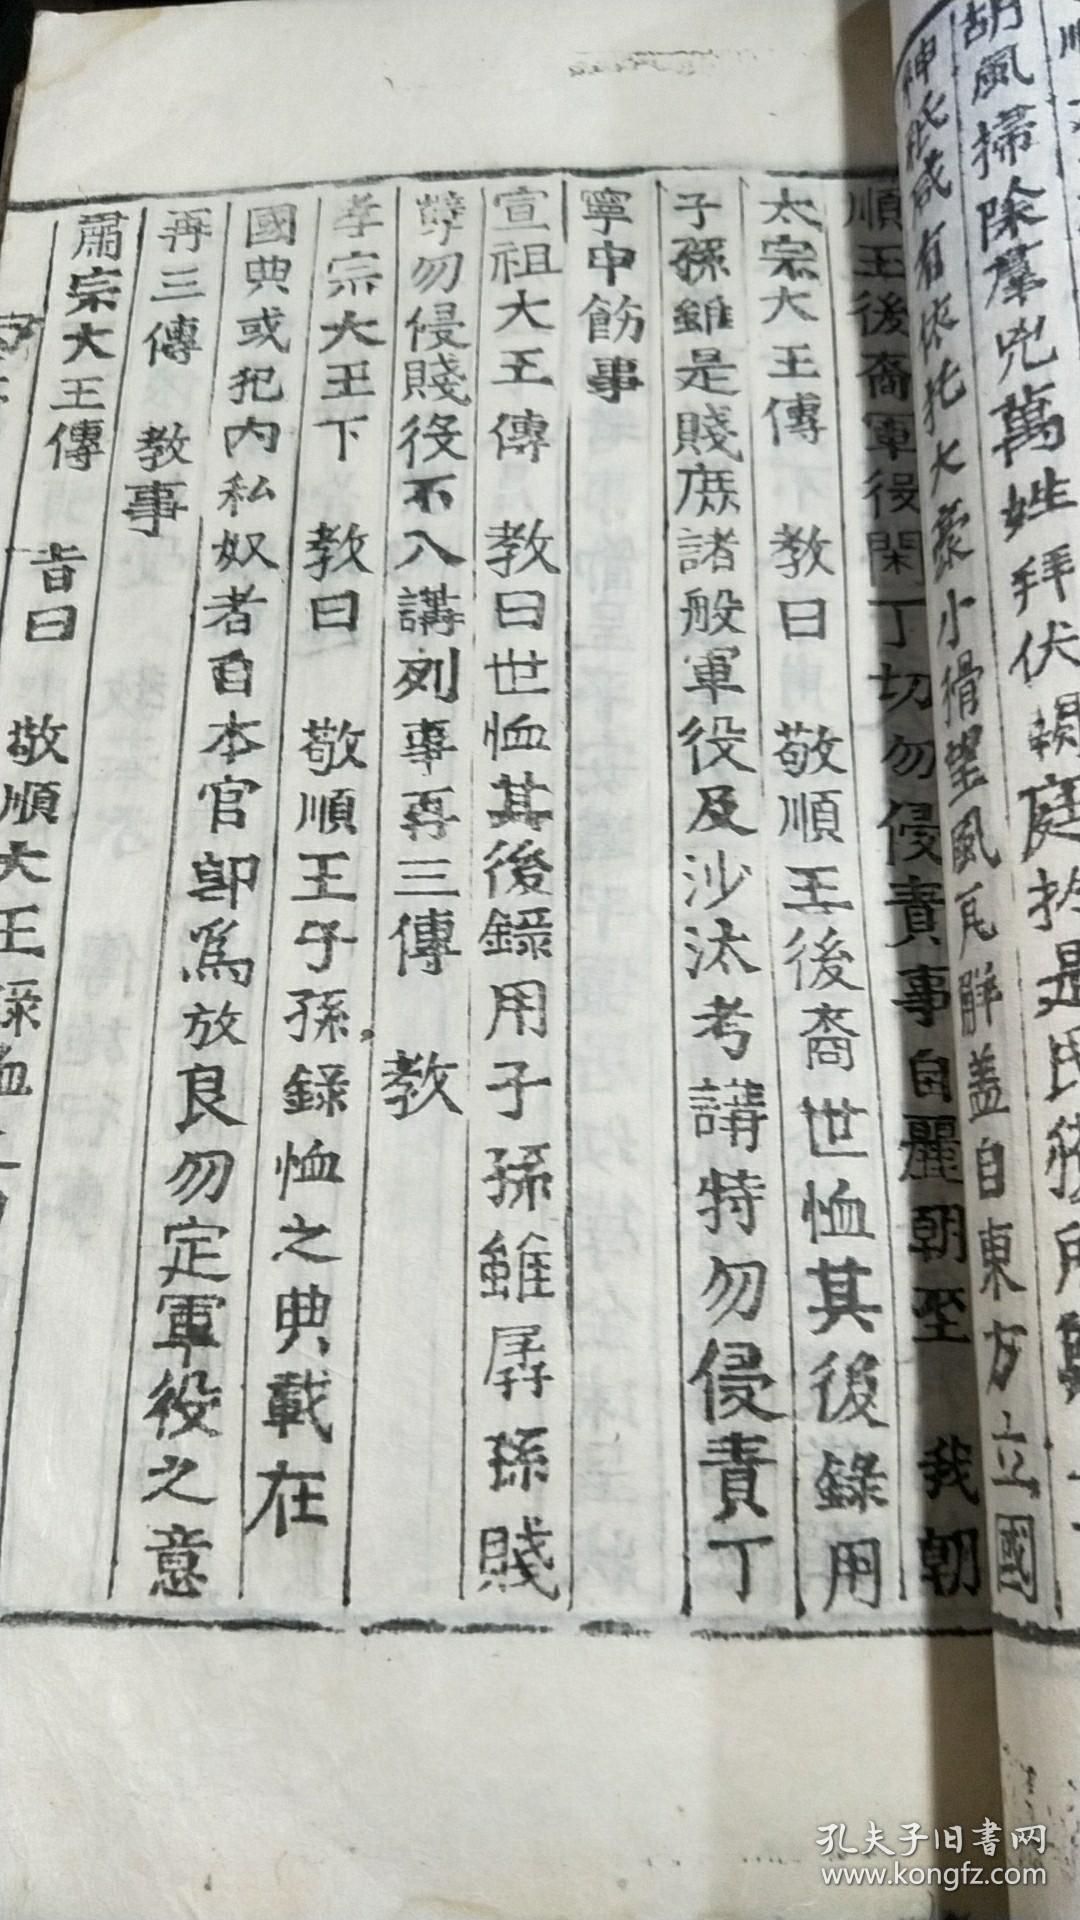 胡風掃除羣兇萬姓拜伏闕庭於是民
神祗咸有依托大豪小猾望風瓦解盖自東方立國
順王後裔軍役閑丁切勿侵責事自麗朝至 我朝
太宗大王傳 教曰 敬順王後裔世恤其後錄用
子孫雖是賤庶諸般軍役及沙汰考講特勿侵責丁
寧申飭事
宣祖大王傳 教曰世恤其後錄用子孫雖孱孫賤
孼勿侵賤役不入講列事再三傳 教
孝宗大王下 教曰 敬順王子孫錄恤之典載在
國典或犯內私奴者自本官卽爲放良勿定軍役之意
再三傳 教事
肅宗大王傳 旨曰 敬順大王錄恤
孔夫子旧書网
www.kongfz.com